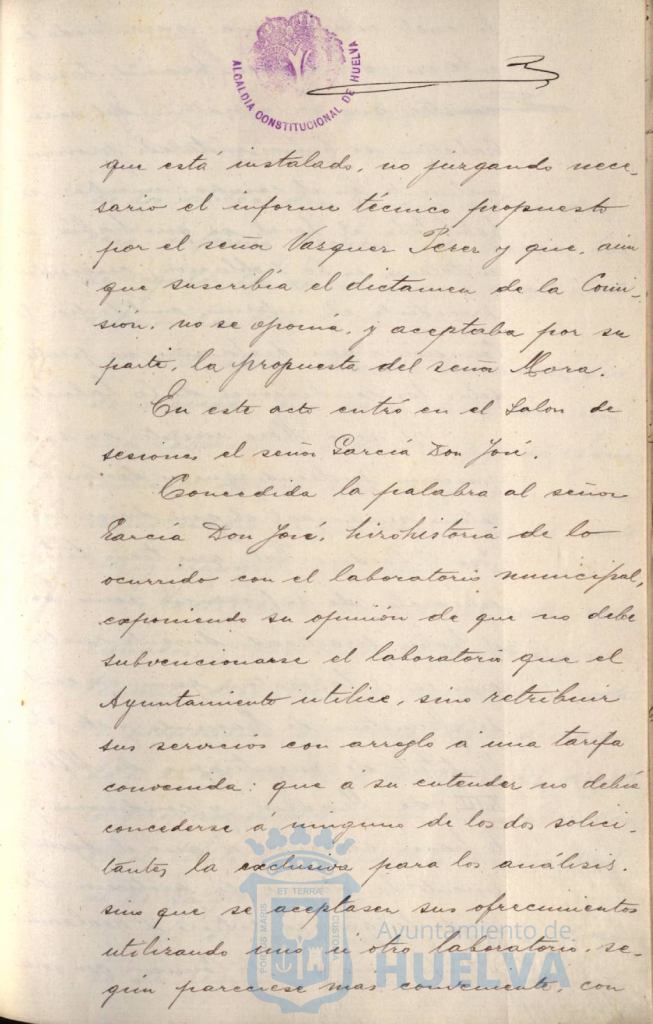 ALCALDIA CONSTITUCIONAL DE HUELVA
que está instalado, no juzgando nece-
sario el informe técnico propuesto
por el señor Vazquez Perez y que, aun
que suscribia el dictamen de la Comi-
sión, no se oponia, y aceptaba por su
parte, la propuesta del señor Mora.
En este acto entró en el Salon de
sesiones el señor García Don José.
Concedida la palabra al señor
García Don José, hizo historia de lo
ocurrido con el laboratorio municipal,
exponiendo su opinión de que no debe
subvencionarse el laboratorio que el
Ayuntamiento utilice, sino retribuir
sus servicios con arreglo á una tarifa
convenida: que á su entender no debia
concederse á ninguno de los dos solici-
tantes la exclusiva para los análisis,
sino que se aceptasen sus ofrecimientos
utilizando uno ú otro laboratorio, se-
gún pareciese mas conveniente, con
PORTUS MARIS ET TERRAE CUSTODIA
Ayuntamiento de
HUELVA